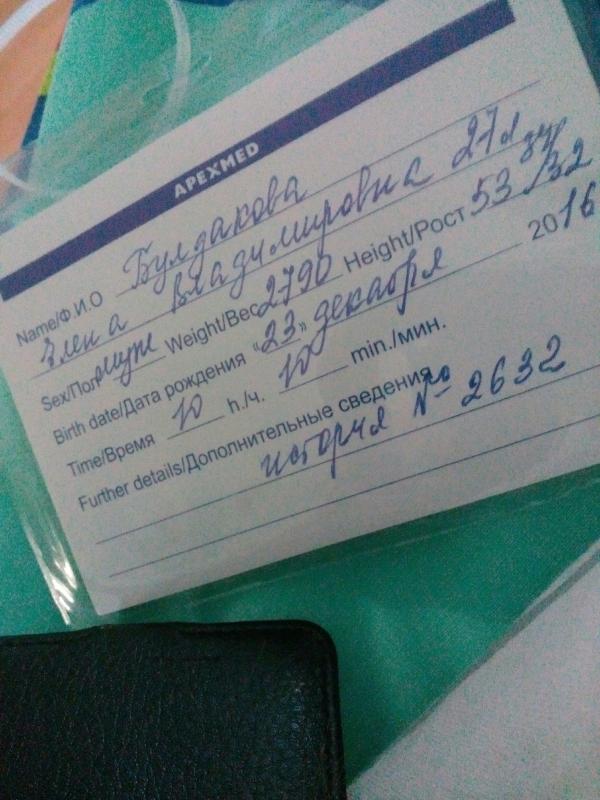 APEXMED
Name/Ф.И.О Булдакова
Елена Владимировна 27л
Sex/Пол муж Weight/Вес 2790 Height/Рост 53/32
Birth date/Дата рождения «23» декабря 2016
Time/Время 10 h./ч. 10 min./мин.
Further details/Дополнительные сведения
история № 2632